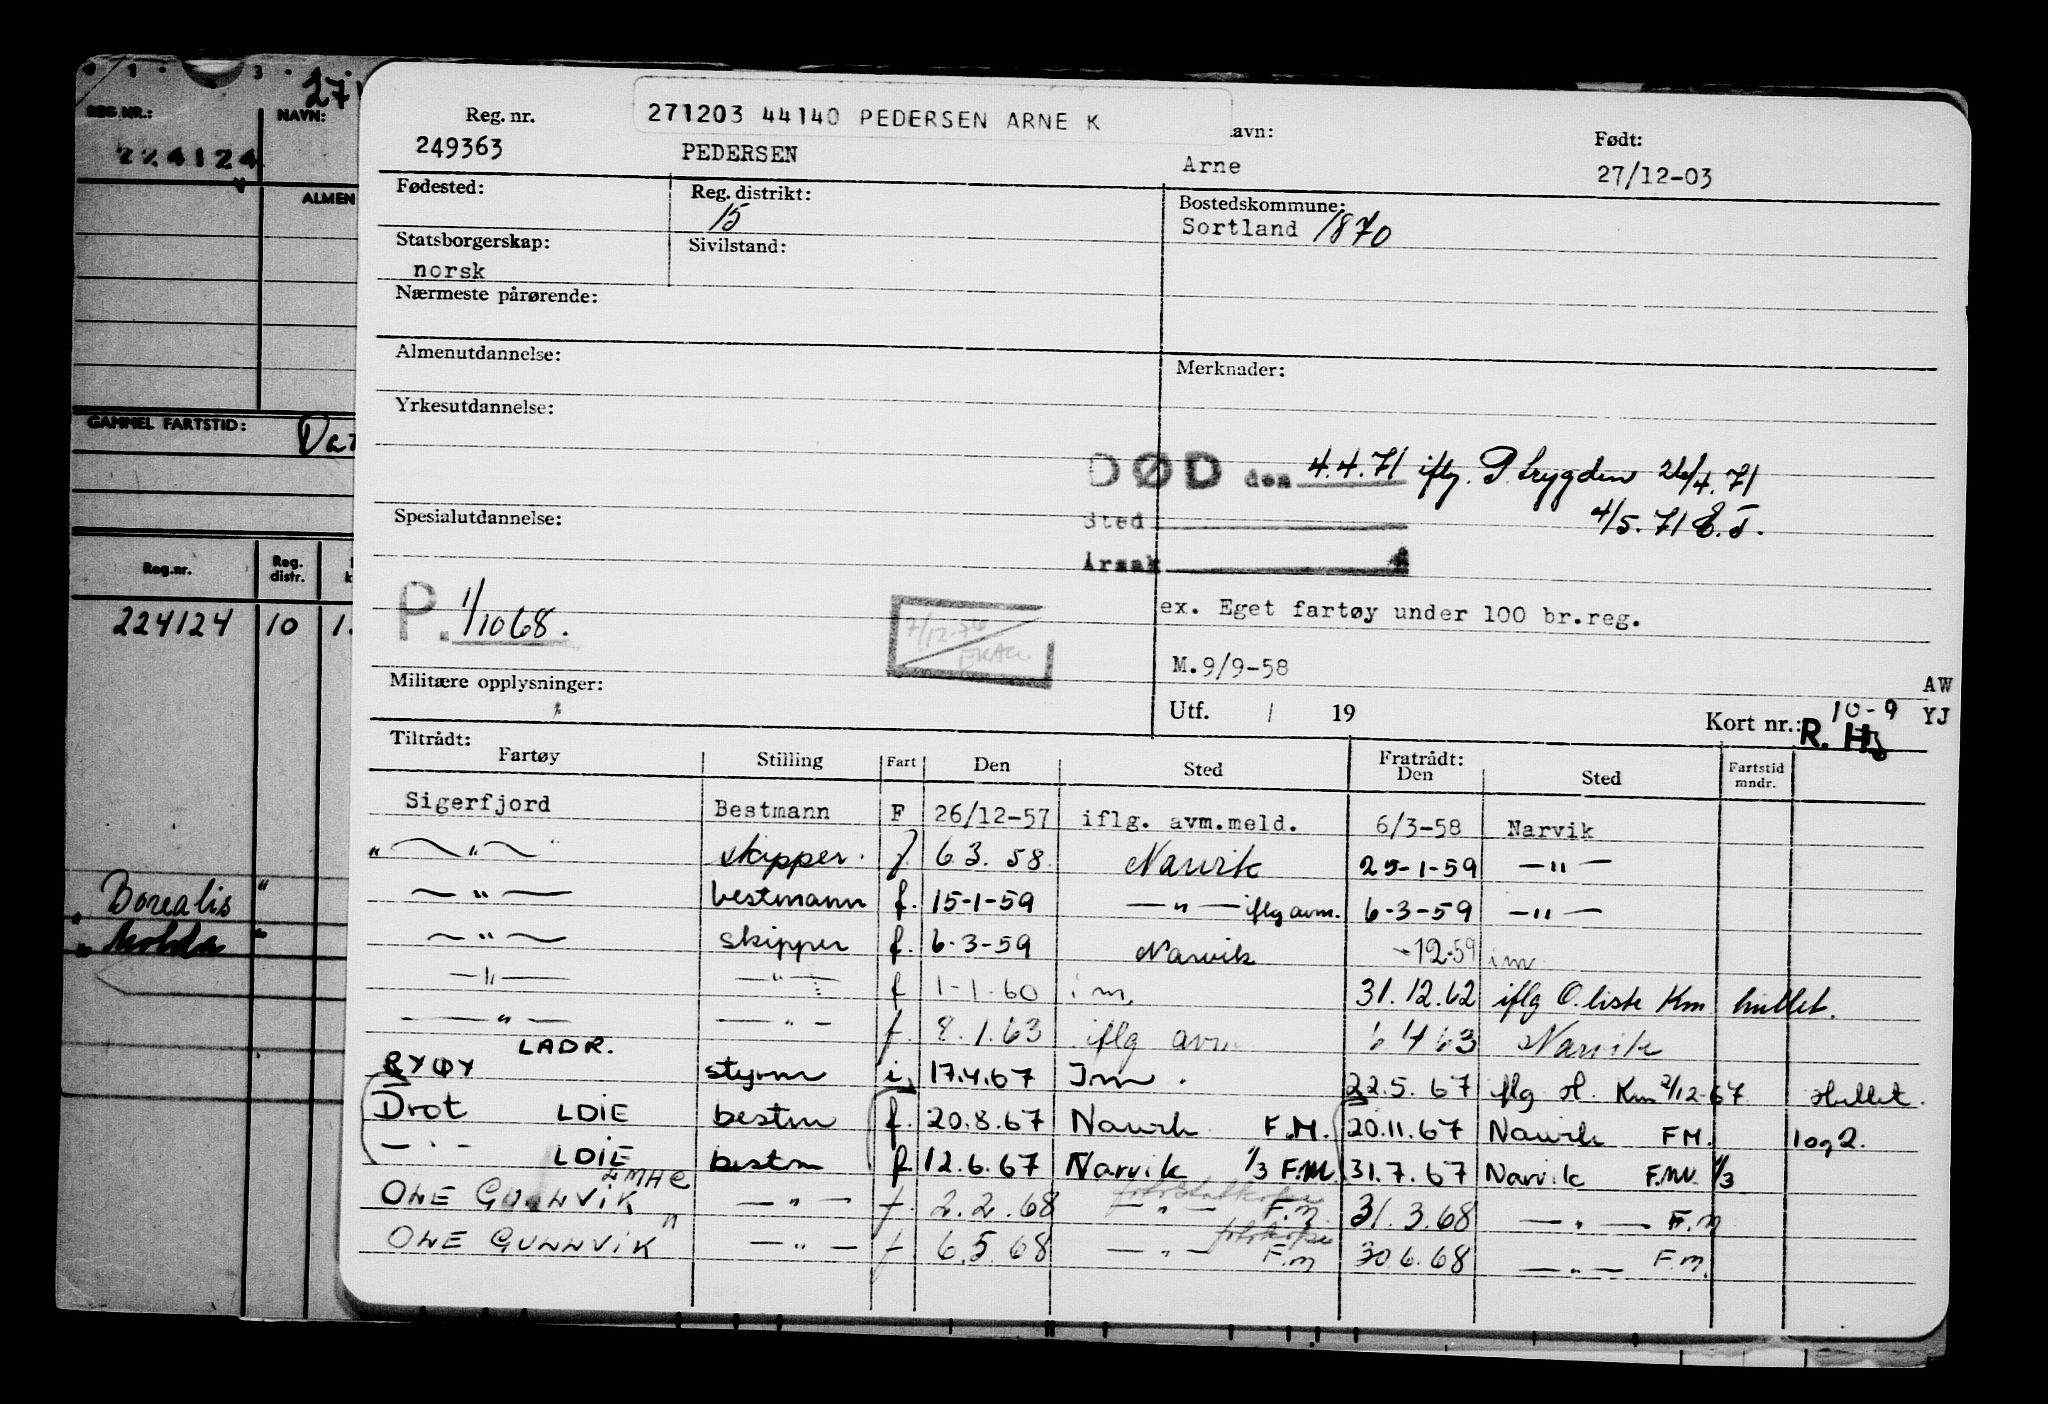 271203 44140 PEDERSEN ARNE K
Reg. nr. avn: Født:
249363 PEDERSEN Arne 27/12-03
Fødested: Reg. distrikt: 15 Bostedskommune:
Sortland 1870
Statsborgerskap: Sivilstand:
norsk
Nærmeste pårørende:
Almenutdannelse: Merknader:
Yrkesutdannelse:
DØD den 4.4.71 iflg. P.trygden 26/4.71
4/5.71
Spesialutdannelse: Sted
Årsak
P. 1/10 68.
ex. Eget fartøy under 100 br.reg.
M.9/9-58
Militære opplysninger: AW
Utf. / 19 Kort nr.: 10-9 YJ
R. H
Tiltrådt: Fratrådt:
Fartøy Stilling Fart Den Sted Den Sted Fartstid mndr.
Sigerfjord Bestmann F 26/12-57 iflg. avm.meld. 6/3-58 Narvik
" skipper. f 6 3. 58. Narvik 25-1-59 — " —
— " — bestmann f. 15-1-59 — " — iflg avm. 6-3-59 — " —
— " — skipper f. 6-3-59 Narvik -12-59 im
— " — — " — f 1-1.60 im. 31.12.62 iflg O.liste Km hullet.
— " — — " — f. 8.1.63 iflg avm. 6 4 63 Narvik
RYØY LADR. styrm i. 17.4.67 Im. 22.5.67 iflg H. Km 2/12-67 Hullet.
Drot LDIE bestm f. 20.8.67 Narvik F.M. 20.11.67 Narvik FM. 1 og 2.
— " — LDIE bestm f. 12.6.67 Narvik 1/3 F.M. 31.7.67 Narvik F.M. 1/3
ONE GUNNVIK LMHC — " — f. 2.2.68 — " — fotostatkopi F.m. 31.3.68 — " — F.m
ONE GUNNVIK " — " — f 6.5 68 — " — fotokopi F.m 30.6.68 — " — F.m.
REG.NR.: NAVN:
224124
ALMEN
GAMMEL FARTSTID:
Reg.nr. Reg. distr.
224124 10 1.
"Borealis"
"Molda"